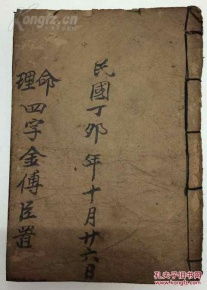 民國丁卯年十月廿六日
命理四字金傅臣
孔夫子旧书网